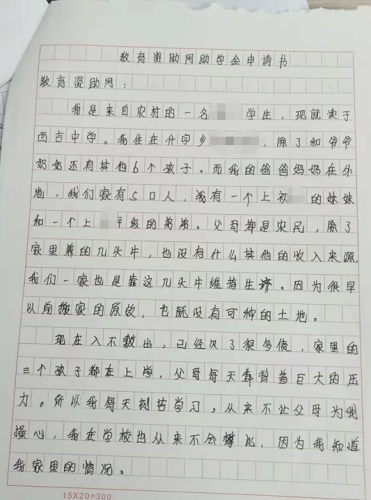 教育资助网助学金申请书
教育资助网：
我是来自农村的一名 学生，现就读于
西吉中学。我住在什字乡 ，除了和爷爷
奶奶还有其他6个孩子。而我的爸爸妈妈在外
地，我们家有5口人，我有一个上初 的妹妹
和一个上 年级的弟弟。父母都是农民，除了
家里养的几头牛，也没有什么其他的收入来源
我们一家也是靠这几头牛维持生 。因为很早
以前搬家的原故，也既没有可种的土地。
现在入不敷出，已经欠了很多债，家里的
三个孩子都在上学，父母每天都背着巨大的压
力。所以我每天刻苦学习，从来不让父母为我
操心，我在学校也从来不会攀比，因为我知道
我家里的情况。
15X20=300